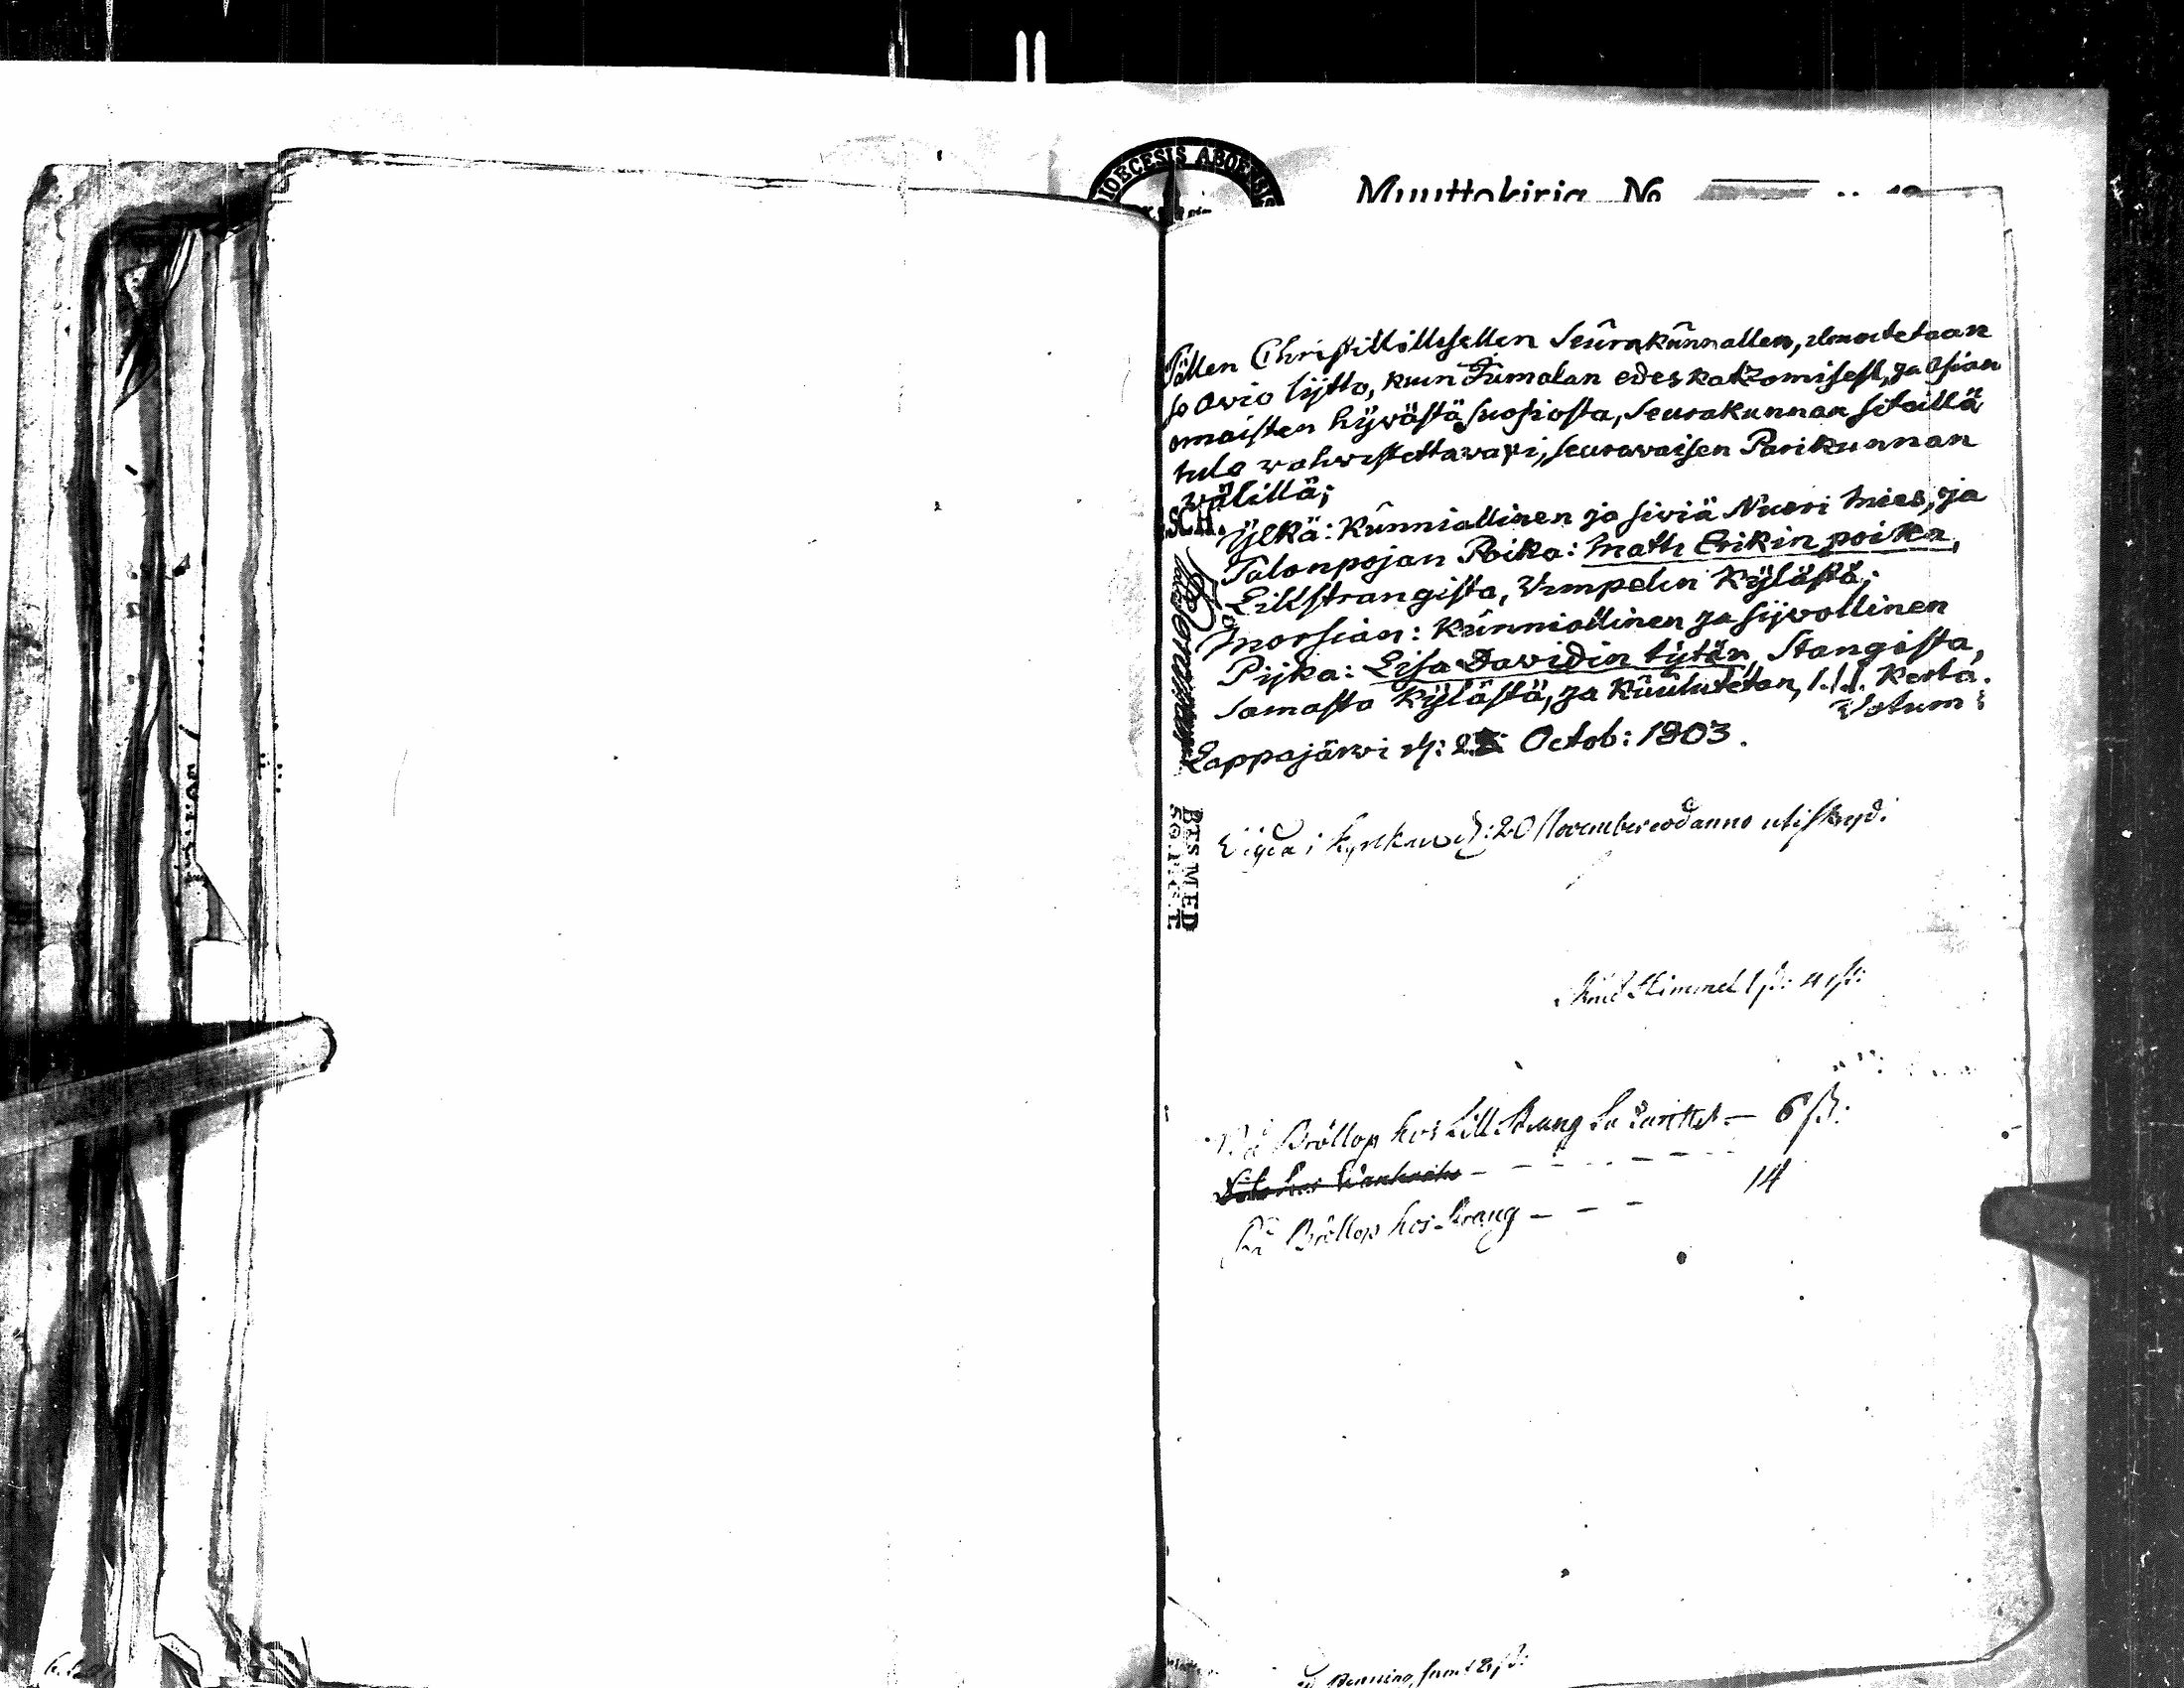 DIOECESIS ABOENSIS
Muuttokirja No
Tällen Christillisellen Seûrakûnnallen, ilmoitetaan
se Avio lijtto, kuin Jumalan edeskatzomisest, ja Asian
omaisten hÿvästä suosiosta, Seurakunnan siteillä
tule wahwistettawaxi, seurawaisen Parikunnan
wälillä;
SCH.
Ÿlkä: Kûnniallinen ja siviä Nuori Mies, ja
Talonpojan Poika: Matts Erikin poika,
Lillstrangista, Vimpelin Kÿlästä;
Morsian: Kûnniallinen ja sijvollinen
Pijka: Lisa Dawidin tÿtär, Stangista,
Samasta Kÿlästä, ja Kûûlutetan, 1.1.1. Kerta.
Votum:
Lappajärwi d: Octob: 1803.
BTSMED
Vigda i Kyrkan d: 20 November eod anno
Himmel
På Bröllop hos Lill Strang — 6 ß:
14
På Bröllop hos Strang — — —